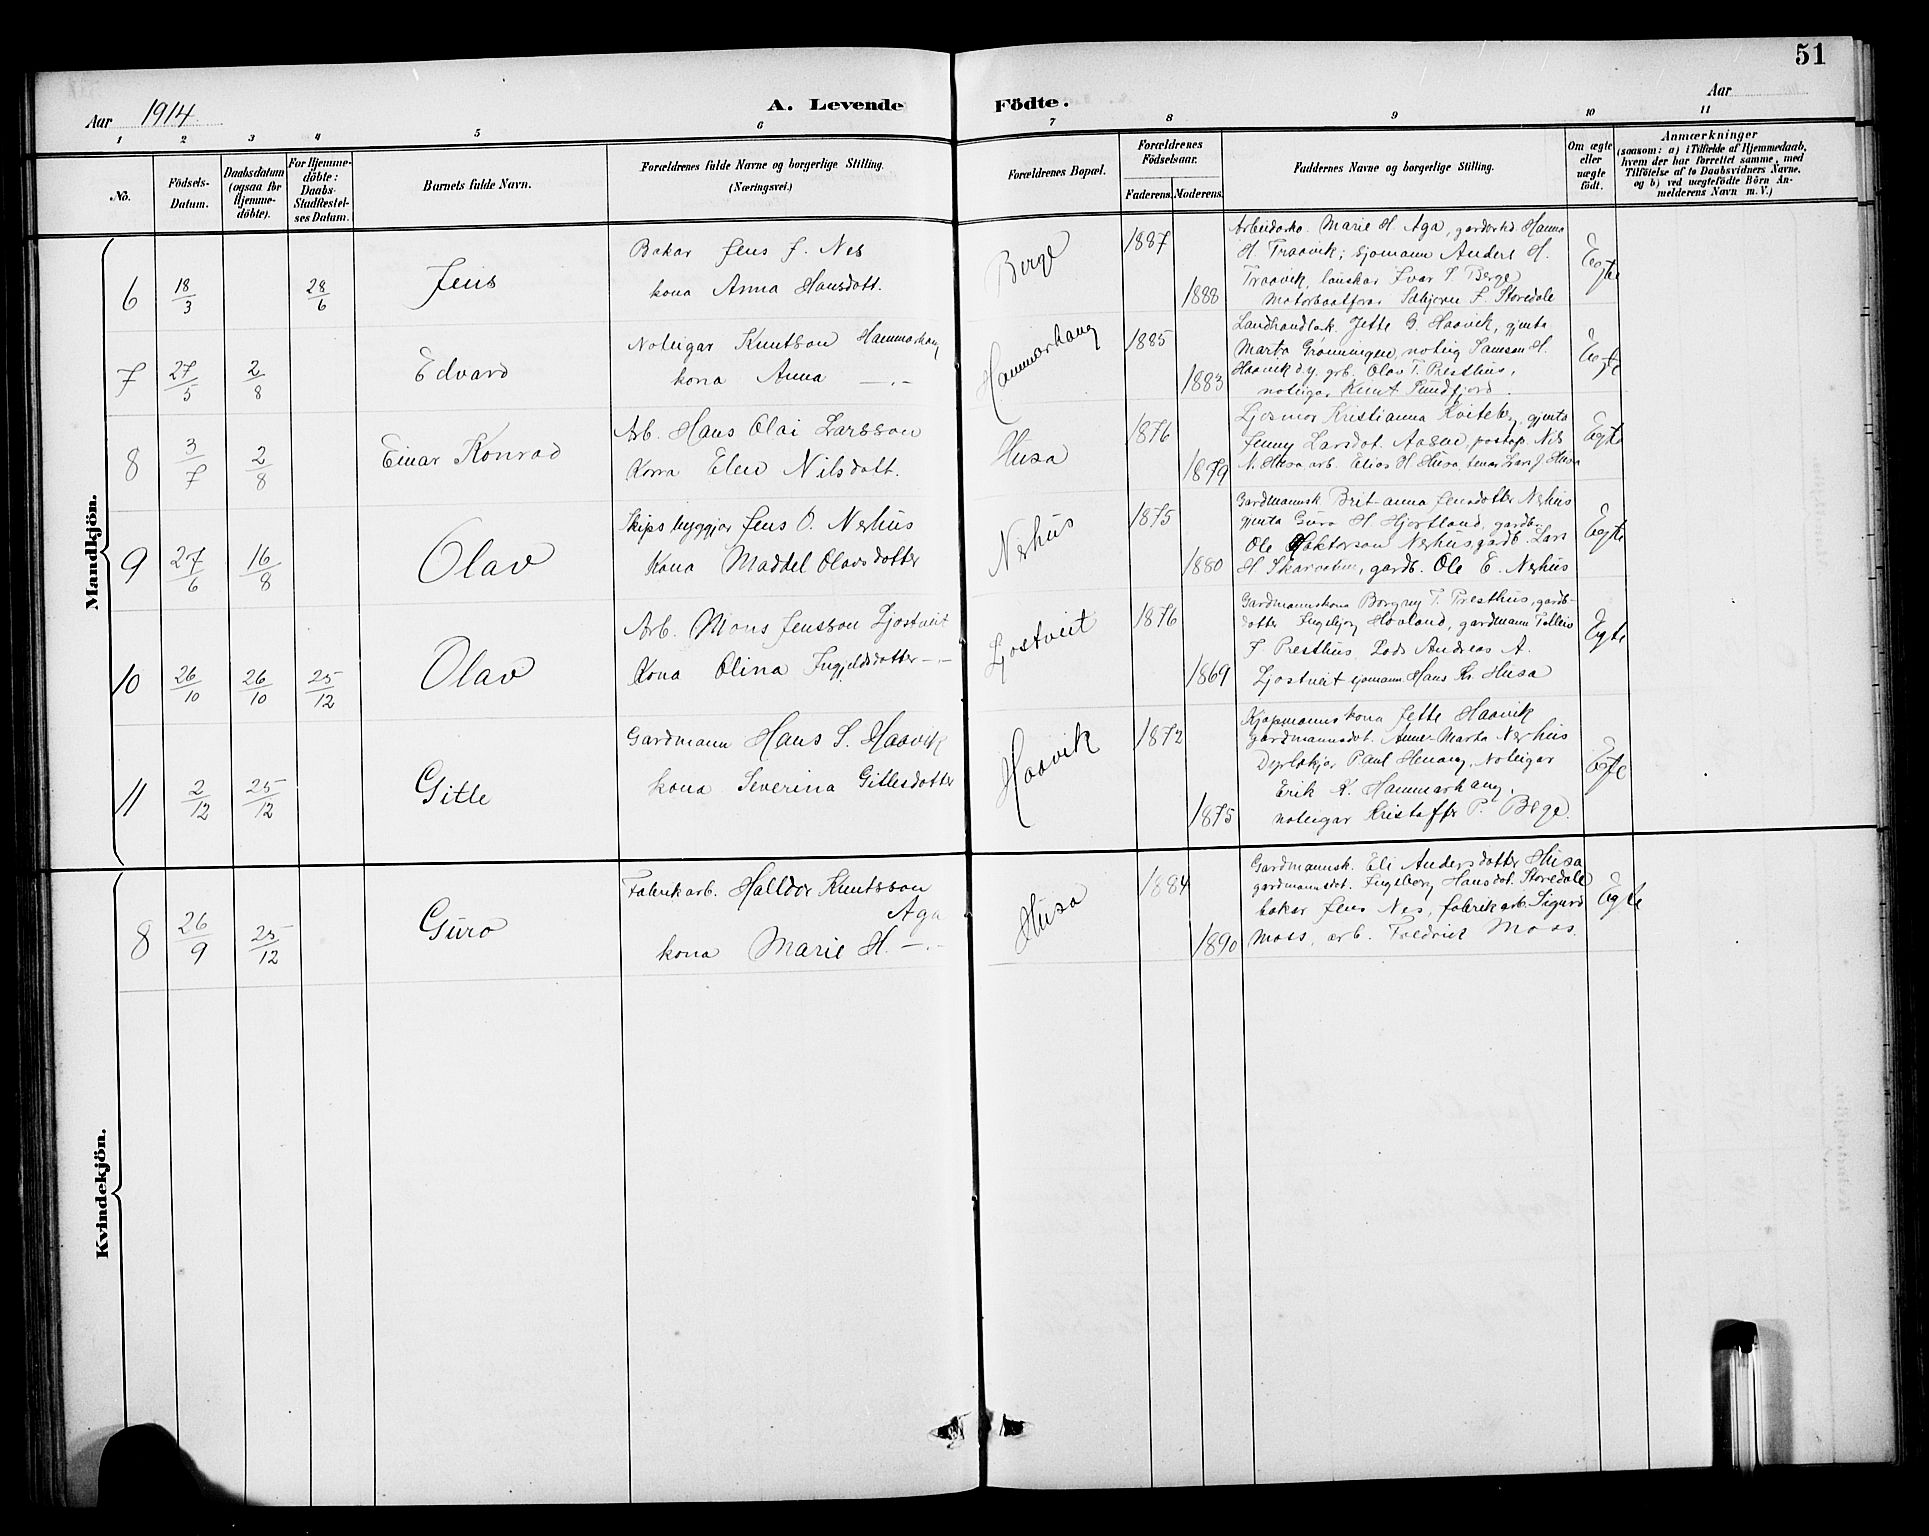 51
Aar 1914. A. Levende Födte. Aar
1 2 3 4 5 6 7 8 9 10 11
No.
Födsels-Datum.
Daabsdatum (ogsaa for Hjemme-döbte).
For Hjemme-döbte: Daabs-Stadfæstel-ses Datum.
Barnets fulde Navn.
Forældrenes fulde Navne og borgerlige Stilling. (Næringsvei.)
Forældrenes Bopæl.
Forældrenes Födselsaar.
Faderens. Moderens.
Faddernes Navne og borgerlige Stilling.
Om ægte eller uægte födt.
Anmærkninger
(saasom: a) i Tilfælde af Hjemmedaab,
hvem der har forrettet samme, med
Tilföielse af to Daabsvidners Navne,
og b) ved uægtefödte Börn An-
melderens Navn m. V.)
Mandkjön.
6 18/3 28/6 Jens
Bakar Jens J. Nes
kona Anna Hansdott.
Berge 1887 1888
Arbeidarko. Marie H. Aga, Hanna
H. Traavik; sjomann Anders H.
Traavik, Ivar J. Berge
Storedale
Egte
7 27/5 2/8 Edvard
Noteigar Knutson Hammarhaug
kona Anna —"—
Hammarhaug 1885 1883
Landhandlark. Jette G. Haavik, gjenta
Marta Grønningen, noteig Samson H.
Haavik d.y, grb. Olav T. Presthus,
noteigar Knut Sundfjord.
Egte
8 3/7 2/8 Einar Konrad
Arb. Hans Olai Larsson
Kona Elen Nilsdott.
Husa 1876 1879
Ljosmor Kristianna Kviteby, gjenta
Jenny Larsdot. Aasen, postop. Nils
N. Husa, arb. Elias H. Husa, Lars J. Husa
Egte
9 27/6 16/8 Olav
Skipsbyggjar Jens O. Nerhus
Kona Maddel Olavsdotter
Nerhus 1875 1880
Gardmannsk Brit-anna Jensdotter Nerhus
gjenta Guro H Hjortland, gardb.
Ole Nerhus, gardb. Lars
H Skarvatun, gardb. Ole E. Nerhus
Egte
10 26/10 26/10 25/12 Olav
Arb. Mons Jensson Ljostveit
Kona Olina Ingjeldsdotter —"—
Ljostveit 1876 1869
Gardmannskona Borgny T. Presthus, gardb-
dotter Ingebjorg Hovland, gardmann Tolleiv
J. Presthus, Lods Andreas A.
Ljostveit sjomann Hans Kr. Husa
Egte
11 2/12 25/12 Gitle
Gardmann Hans S. Haavik
kona Severina Gitlesdotter
Haavik 1872 1875
Kjøpmannskona Jette Haavik
gardmannsdot. Anne-Marta Nerhus
Dyrlækjar Paul Henang, Noteigar
Erik K. Hammarhaug,
noteigar Kristaffer P. Berge.
Egte
Kvindekjön.
8 26/9 25/12 Guro
Fabrikarb. Halldor Knutsson
Aga
kona Marie H. —"—
Husa 1884 1890
Gardmannsk. Eli Andersdotter Husa
gardmannsdot. Ingeborg Hansdot. Storedale
bakar Jens Nes, fabrikarb. Sigurd
Moss, arb. Moss.
Egte